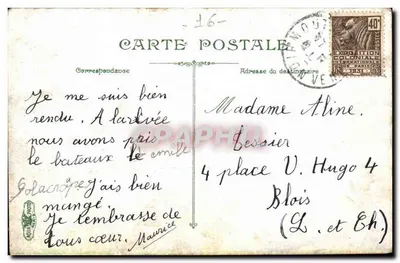 16-
CARTE POSTALE
Correspondance
Adresse du destinataire
40c
EXPOSITION
COLONIALE
INTERNATIONALE
PARIS
1931
Je me suis bien
rendu. A larivée
nous avons pris
le bateaux le emile
Solacroipe j'ais bien
mangé.
Je t'embrasse de
tous cœur. Maurice
Madame Aline
Tessier
4 place V. Hugo 4
Blois
(L. et Ch.)